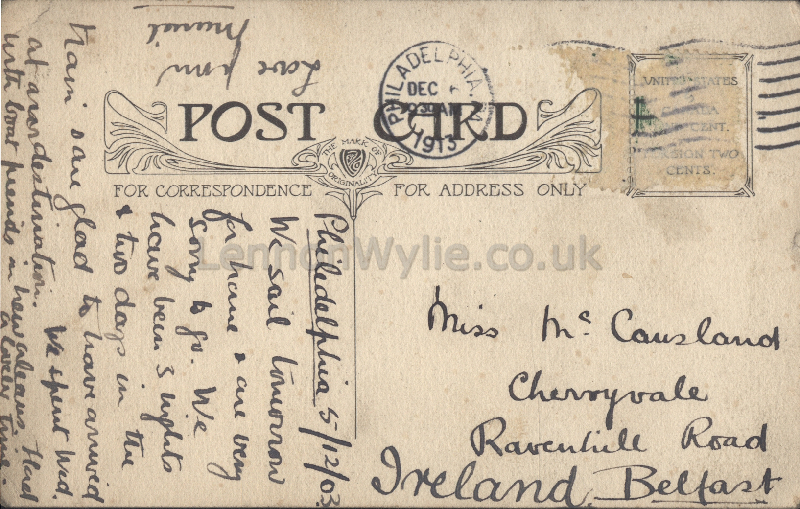 POST CARD
THE MARK OF
ORIGINALITY
FOR CORRESPONDENCE
FOR ADDRESS ONLY
PHILADELPHIA, PA
DEC
930 AM
1913
UNITED STATES
CENT.
TWO
CENTS.
Philedelphia 5/12/03
We sail tomorrow
for home & are very
sorry to go. We
have been 3 nights
& two days in the
train & are glad to have arrived
at our destination. We spent Wed.
with boat friends in New Orleans. Had
a lovely time.
Love from
Muriel
Miss Mc Causland
Cherryvale
Ravenhill Road
Ireland Belfast
LennonWylie.co.uk